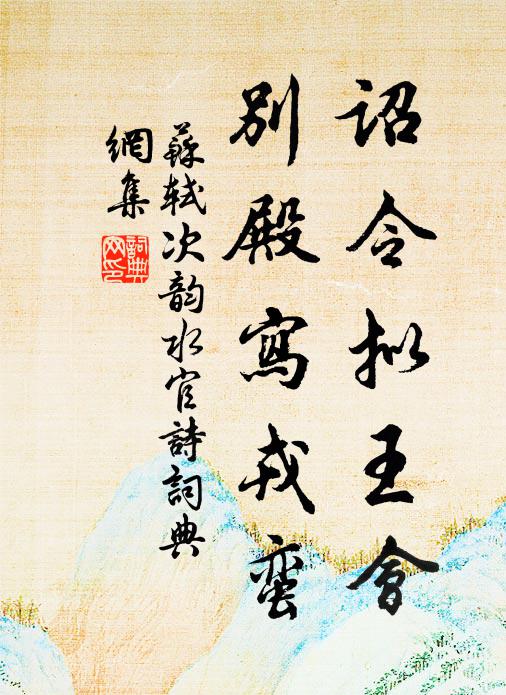 诏令拟王會
别殿寫戎蛮
蘇轼次韵水官詩詞典
網集
詞典
网印